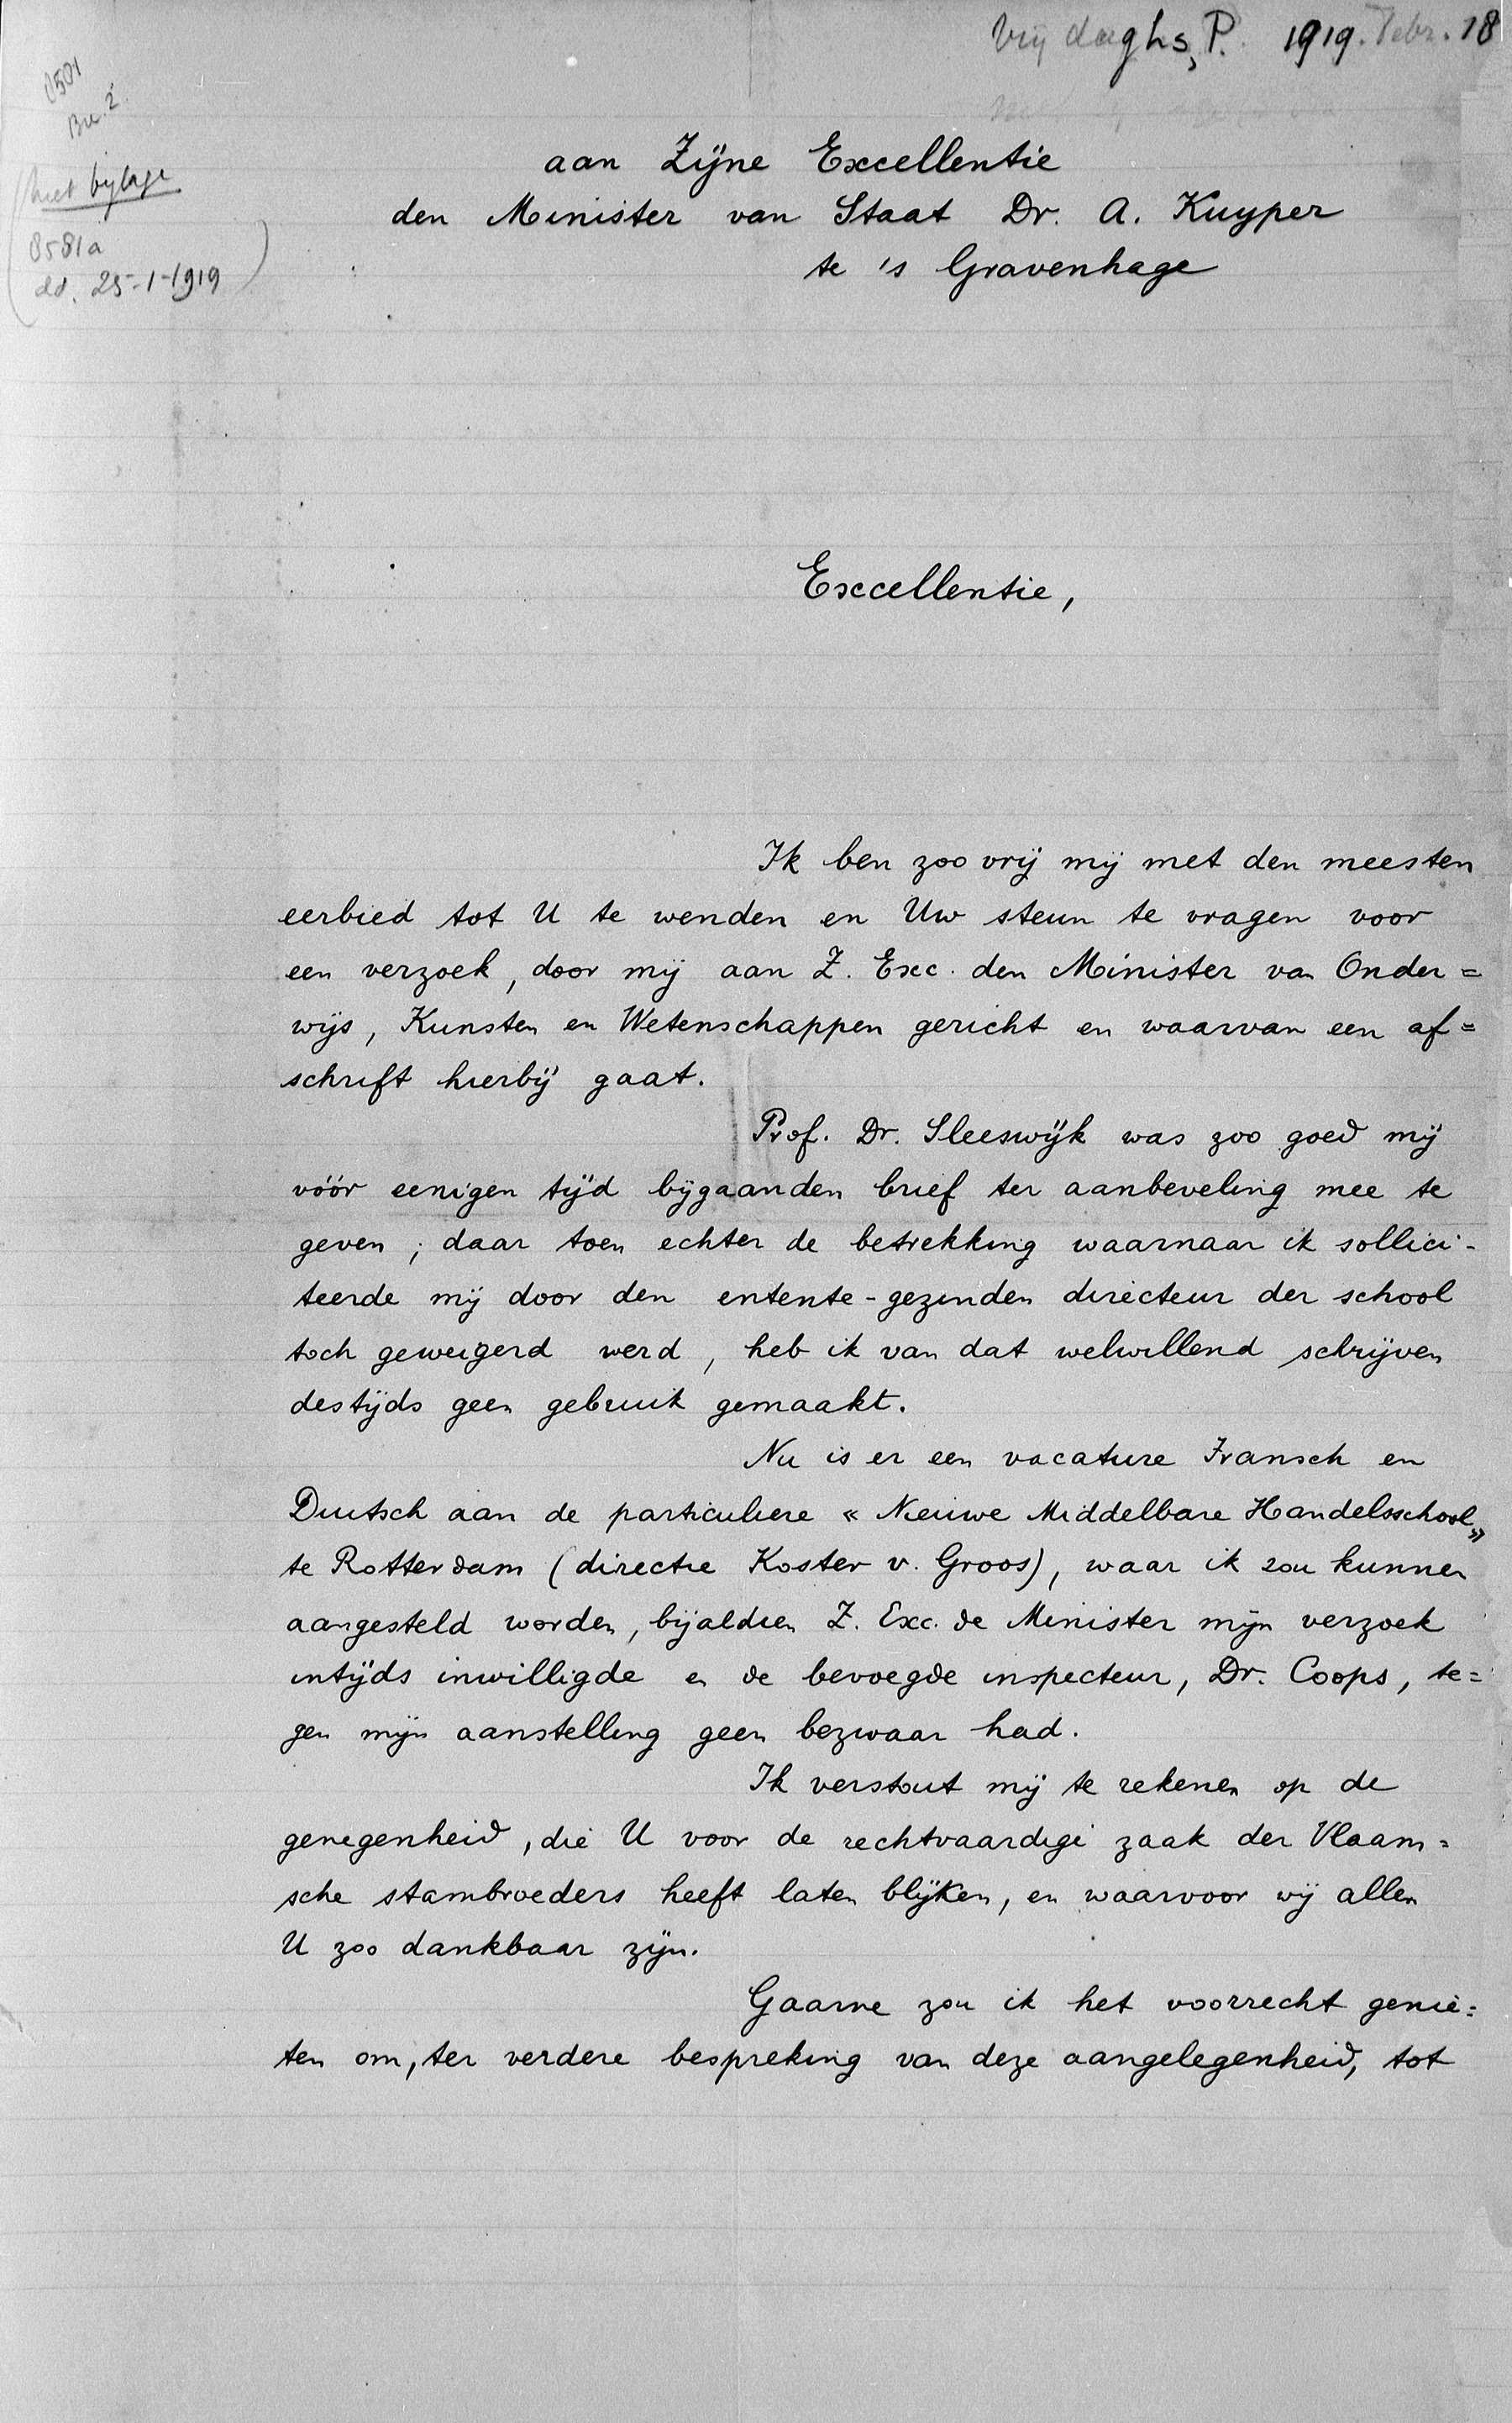 Vrijdaghs, P. 1919. Febr. 18
8581
Br. 2.
(met bijlage
8581a
dd. 25-1-1919)
aan Zijne Excellentie
den Minister van Staat Dr. A. Kuyper
te 's Gravenhage
Excellentie,
Ik ben zoo vrij mij met den meesten
eerbied tot U te wenden en Uw steun te vragen voor
een verzoek, door mij aan Z. Exc. den Minister van Onder=
wijs, Kunsten en Wetenschappen gericht en waarvan een af=
schrift hierbij gaat.
Prof. Dr. Sleeswijk was zoo goed mij
vóór eenigen tijd bijgaanden brief ter aanbeveling mee te
geven; daar toen echter de betrekking waarnaar ik sollici-
teerde mij door den entente-gezinden directeur der school
toch geweigerd werd, heb ik van dat welwillend schrijven
destijds geen gebruik gemaakt.
Nu is er een vacature Fransch en
Duitsch aan de particuliere « Nieuwe Middelbare Handelsschool »
te Rotterdam (directie Koster v. Groos), waar ik zou kunnen
aangesteld worden, bijaldien Z. Exc. de Minister mijn verzoek
intijds inwilligde en de bevoegde inspecteur, Dr. Coops, te=
gen mijn aanstelling geen bezwaar had.
Ik verstout mij te rekenen op de
genegenheid, die U voor de rechtvaardige zaak der Vlaam=
sche stambroeders heeft laten blijken, en waarvoor wij allen
U zoo dankbaar zijn.
Gaarne zou ik het voorrecht genie=
ten om, ter verdere bespreking van deze aangelegenheid, tot